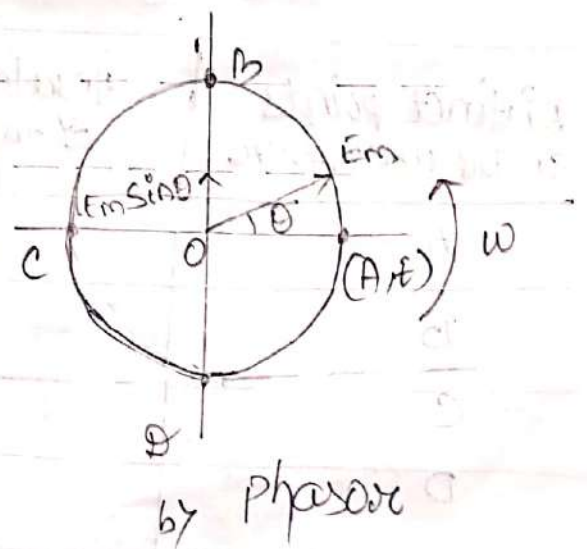 B
Em
Em Sinθ
θ
C
O
(A,E)
W
D
by phasor